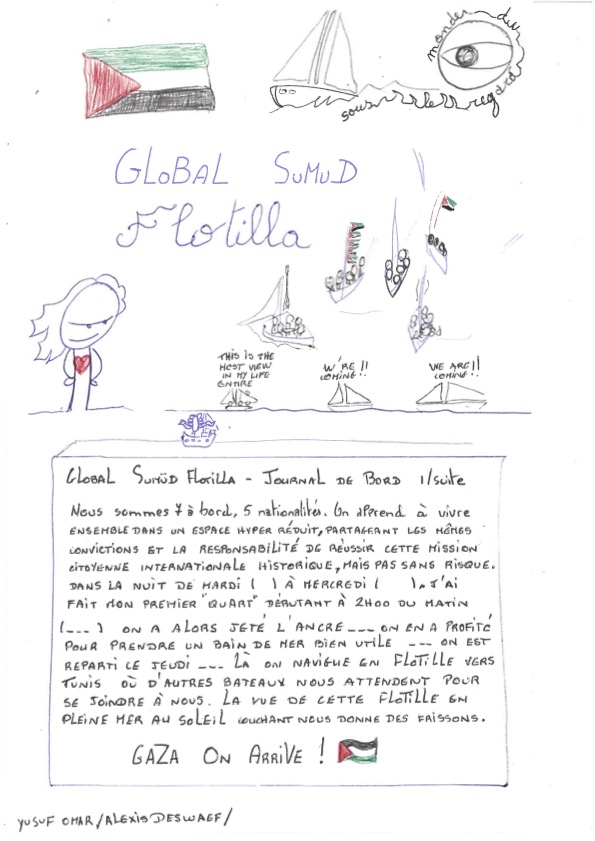 monde du
sous le regard
GLOBAL SUMUD
Flotilla
THIS IS THE
MOST VIEW
IN MY LIFE
ENTIRE
W'RE !!
COMING !!
WE ARE !!
COMING !!
GLOBAL SUMÜD FLOTILLA - JOURNAL DE BORD 1/SUITE
NOUS SOMMES 7 à BORD, 5 NATIONALITÉS. ON APREND à VIVRE
ENSEMBLE DANS UN ESPACE HYPER RÉDUIT, PARTAGEANT LES MÊMES
CONVICTIONS ET LA RESPONSABILITÉ DE RÉUSSIR CETTE MISSION
CITOYENNE INTERNATIONALE HISTORIQUE, MAIS PAS SANS RISQUE.
DANS LA NUIT DE MARDI ( ) À MERCREDI ( ), J'AI
FAIT MON PREMIER "QUART" DÉBUTANT À 2H00 DU MATIN
(---) ON A ALORS JETÉ L'ANCRE --- ON EN A PROFITÉ
POUR PRENDRE UN BAIN DE MER BIEN UTILE --- ON EST
REPARTI CE JEUDI --- LÀ ON NAVIGUE EN FLOTILLE VERS
TUNIS OÙ D'AUTRES BATEAUX NOUS ATTENDENT POUR
SE JOINDRE À NOUS. LA VUE DE CETTE FLOTILLE EN
PLEINE MER AU SOLEIL COUCHANT NOUS DONNE DES FRISSONS.
GAZA ON ARRIVE !
YUSUF OMAR/ALEXIS DESWAEF/